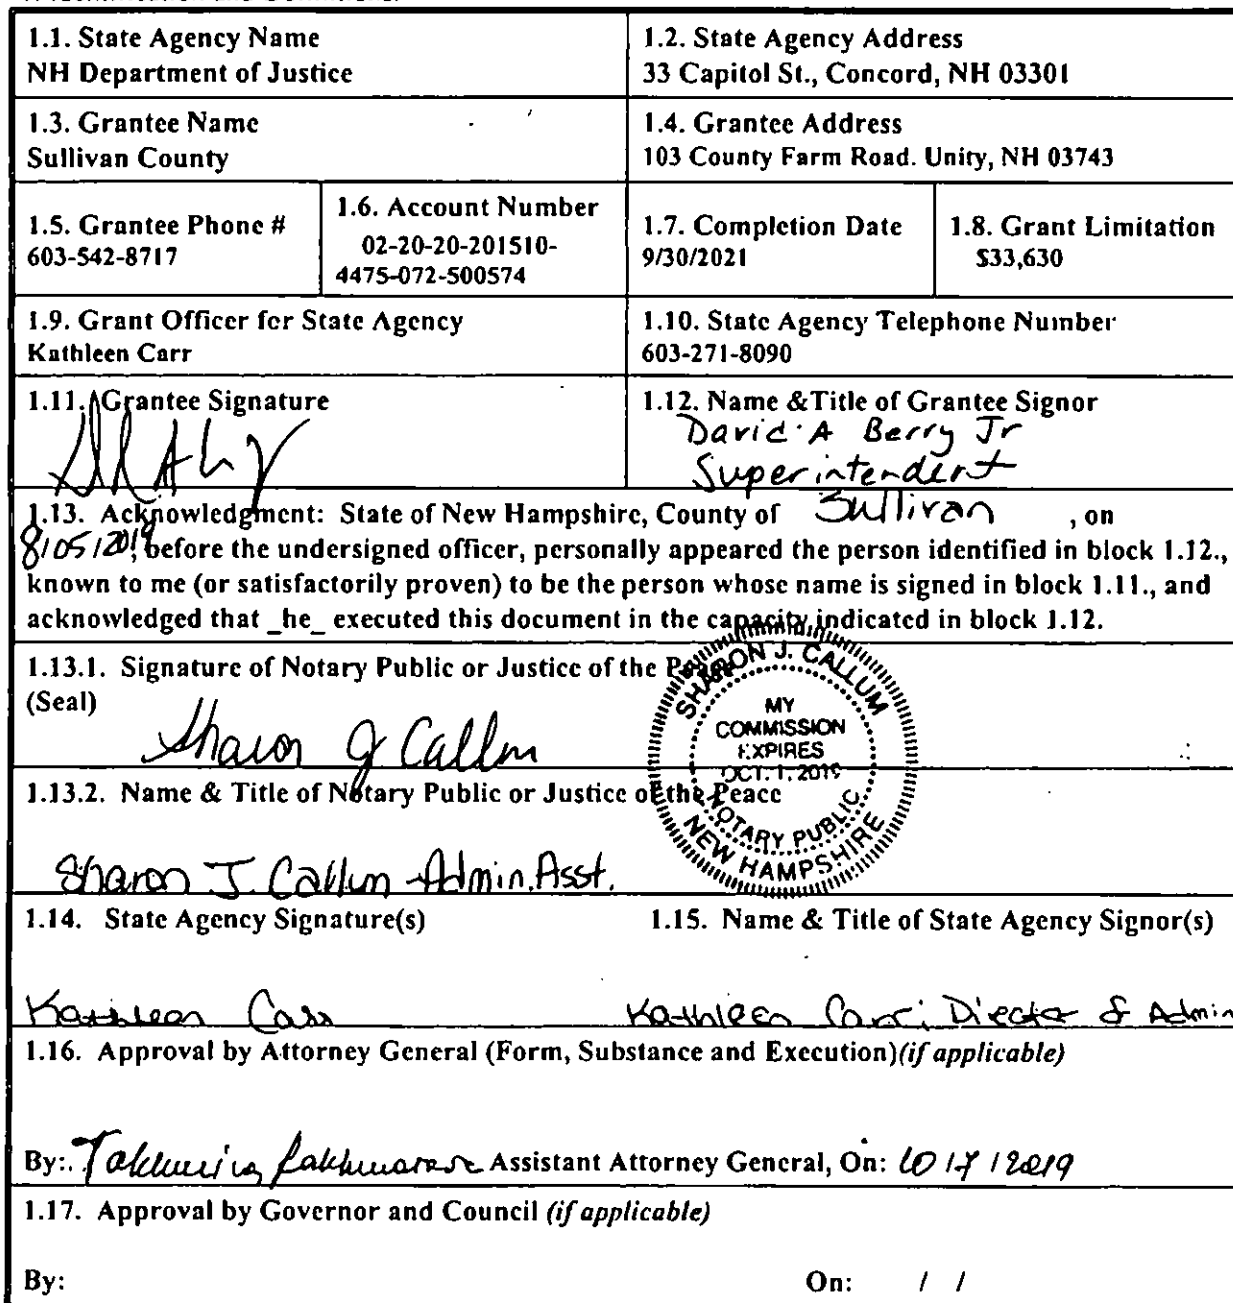 1.1. State Agency Name
NH Department of Justice
1.2. State Agency Address
33 Capitol St., Concord, NH 03301
1.3. Grantee Name
Sullivan County
1.4. Grantee Address
103 County Farm Road. Unity, NH 03743
1.5. Grantee Phone #
603-542-8717
1.6. Account Number
02-20-20-201510-
4475-072-500574
1.7. Completion Date
9/30/2021
1.8. Grant Limitation
$33,630
1.9. Grant Officer for State Agency
Kathleen Carr
1.10. State Agency Telephone Number
603-271-8090
1.11. Grantee Signature
1.12. Name &Title of Grantee Signor
David A Berry Jr
Superintendent
1.13. Acknowledgment: State of New Hampshire, County of Sullivan , on
8/05/2019, before the undersigned officer, personally appeared the person identified in block 1.12.,
known to me (or satisfactorily proven) to be the person whose name is signed in block 1.11., and
acknowledged that _he_ executed this document in the capacity indicated in block 1.12.
1.13.1. Signature of Notary Public or Justice of the Peace
(Seal)
Sharon J Callum
SHARON J. CALLUM
MY
COMMISSION
EXPIRES
OCT. 1, 2019
NOTARY PUBLIC
NEW HAMPSHIRE
1.13.2. Name & Title of Notary Public or Justice of the Peace
Sharon J. Callum - Admin. Asst.
1.14. State Agency Signature(s)
1.15. Name & Title of State Agency Signor(s)
Kathleen Carr
Kathleen Carr, Director of Admin
1.16. Approval by Attorney General (Form, Substance and Execution)(if applicable)
By: Assistant Attorney General, On: 10/7/2019
1.17. Approval by Governor and Council (if applicable)
By: On: / /